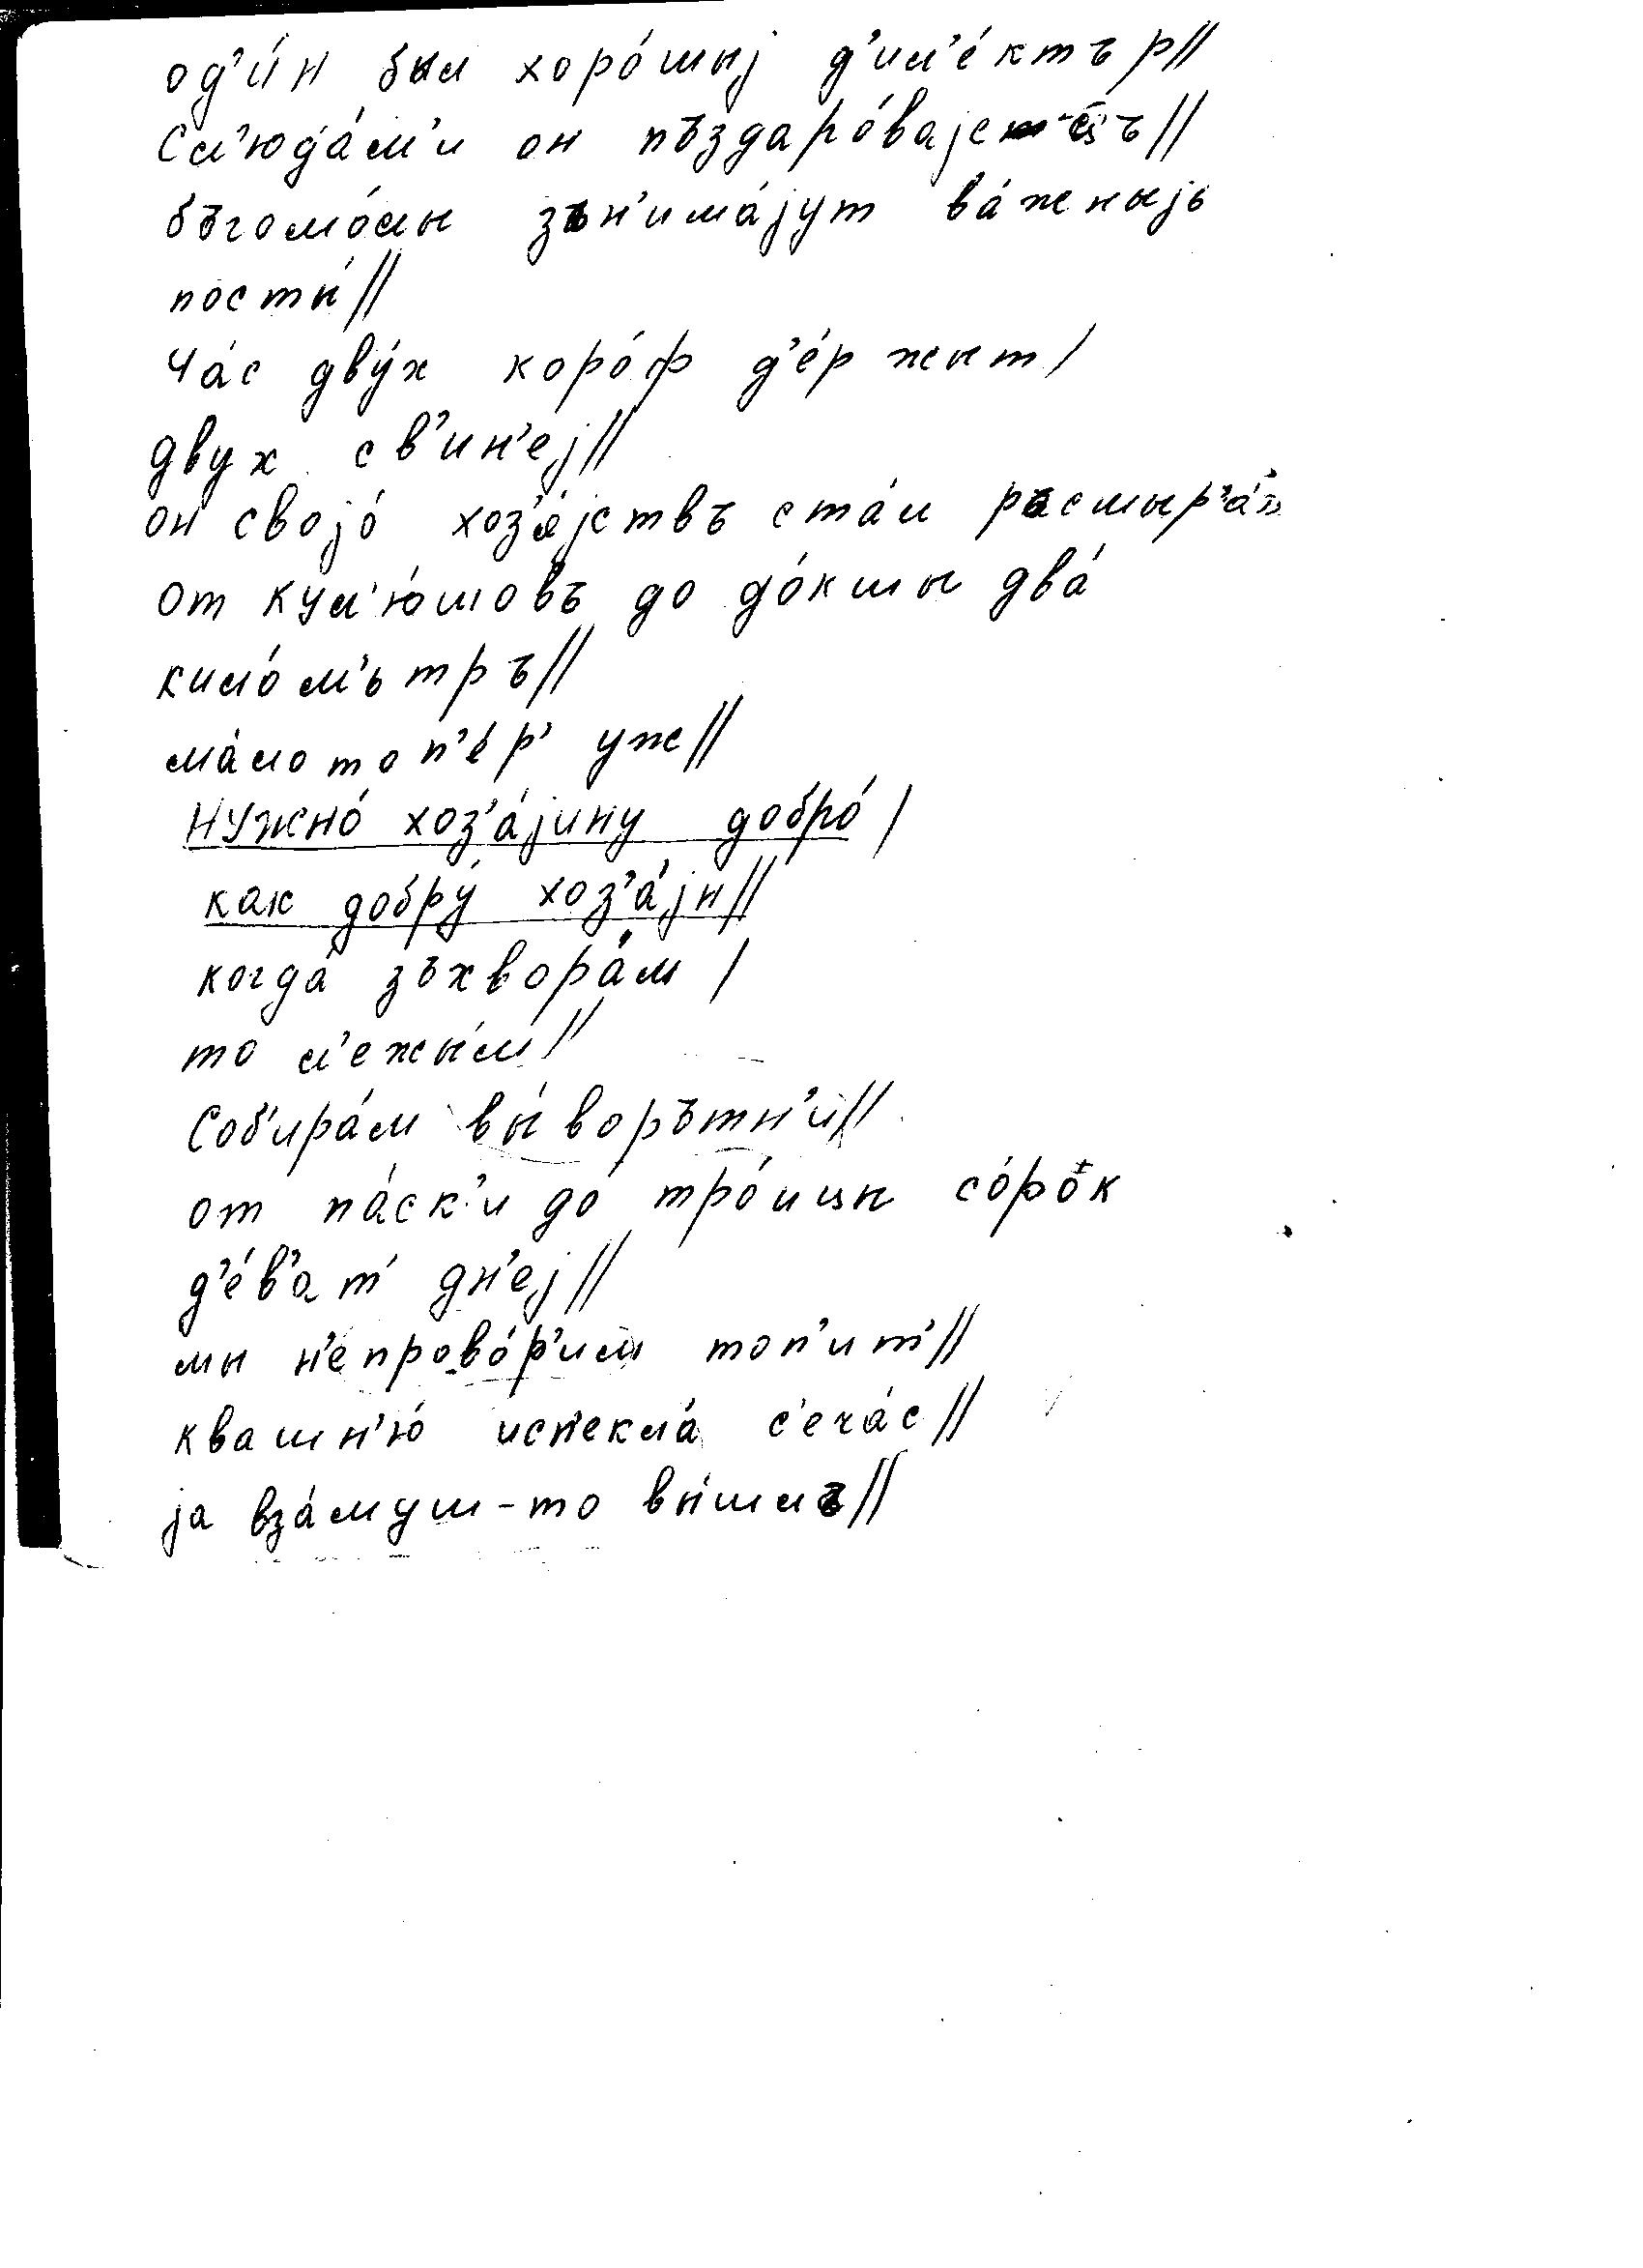 од'и́н был хоро́шыј д'ил'е́ктър//
Сл'юда́м'и он пъздаро́вајс'ъ//
бъгомо́лы зън'има́јут ва́жныјь
посты́//
Ча́с дву́х коро́ф д'е́ржыт/
двух св'ин'еј//
он својо́ хоз'а́јствъ ста́л расшыр'а́т'
от кул'ю́шовъ до до́кшы два́
кило́м'ьтръ//
ма́ло топ'е́р' уж//
Нужно́ хоз'а́јину добро́/
как добру́ хоз'а́јн//
когда́ зъхвора́м/
то л'ежы́м//
Соб'ира́м вы́ворътн'и//
от па́ск'и до тро́ицы со́рок
д'е́в'ат' дн'еј//
мы н'епрово́р'им топ'ит'//
квашн'ю́ исп'екла́ с'еча́с//
ја вза́муш-то вы́шлъ//